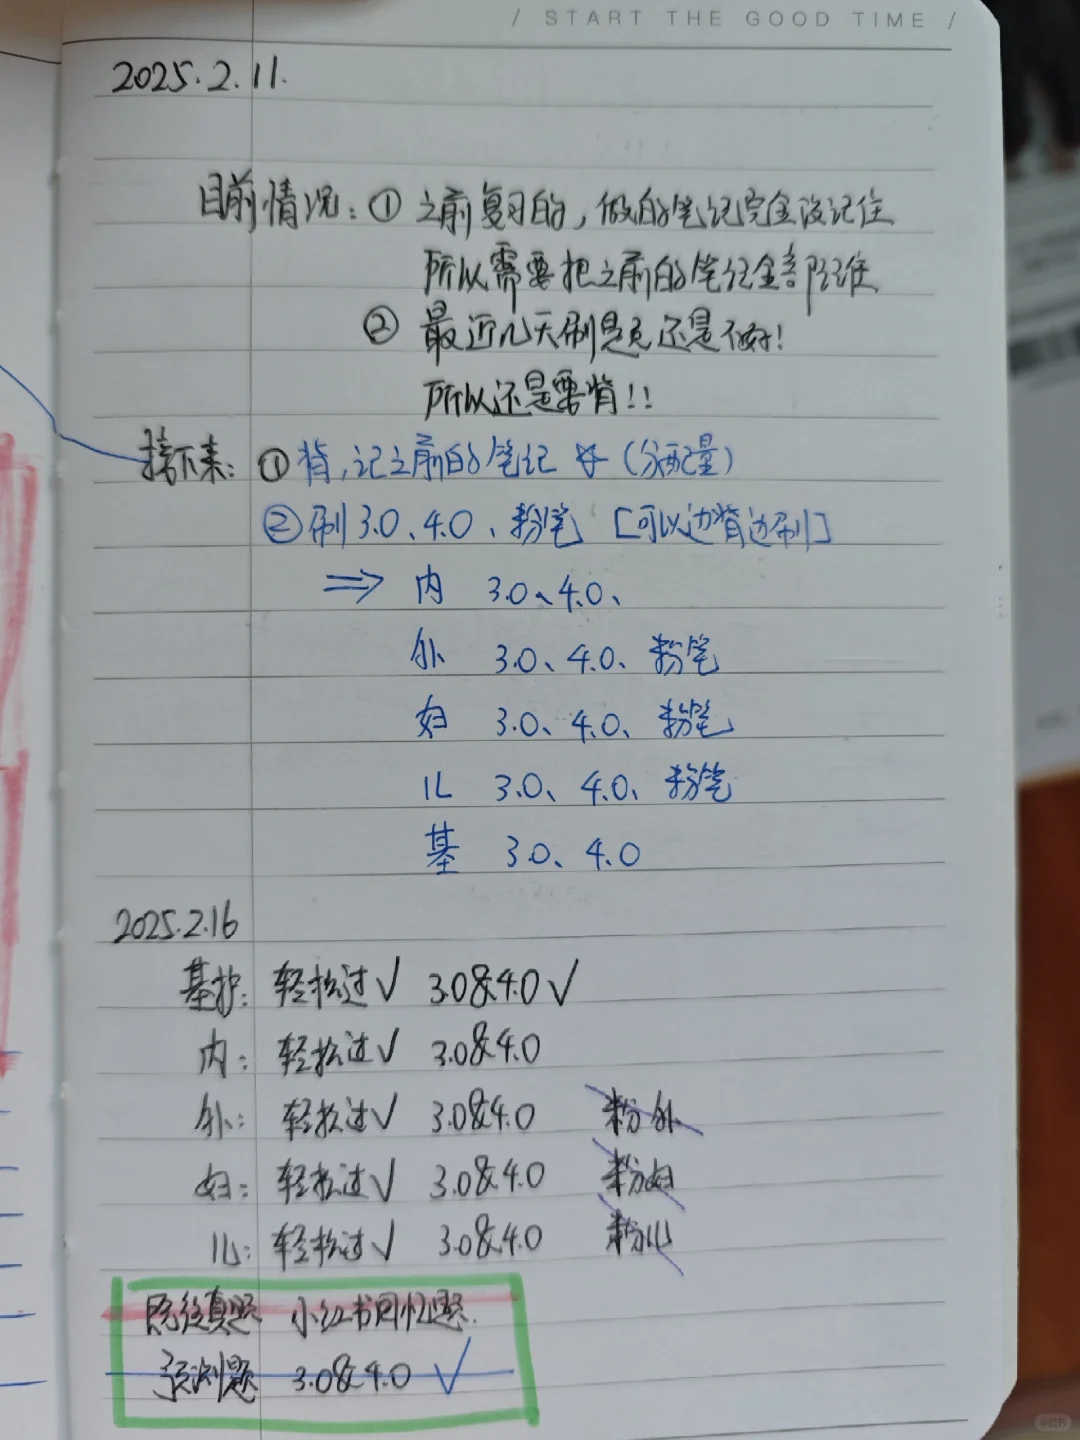 / START THE GOOD TIME /
2025.2.11.
目前情况：① 之前复习的，做的笔记完全没记住
所以需要把之前的笔记全部
② 最近几天刷题还是不好！
所以还是要背！！
接下来：①背，记之前的笔记（分配量）
②刷3.0、4.0、粉笔 [可以边背边刷]
⇒ 内 3.0、4.0、
外 3.0、4.0、粉笔
妇 3.0、4.0、粉笔
儿 3.0、4.0、粉笔
基 3.0、4.0
2025.2.16
基护：轻松过√ 3.0&4.0√
内：轻松过√ 3.0&4.0
外：轻松过√ 3.0&4.0 粉外
妇：轻松过√ 3.0&4.0 粉妇
儿：轻松过√ 3.0&4.0 粉儿
真题 小红书回忆题.
预测题 3.0&4.0 √
小红书